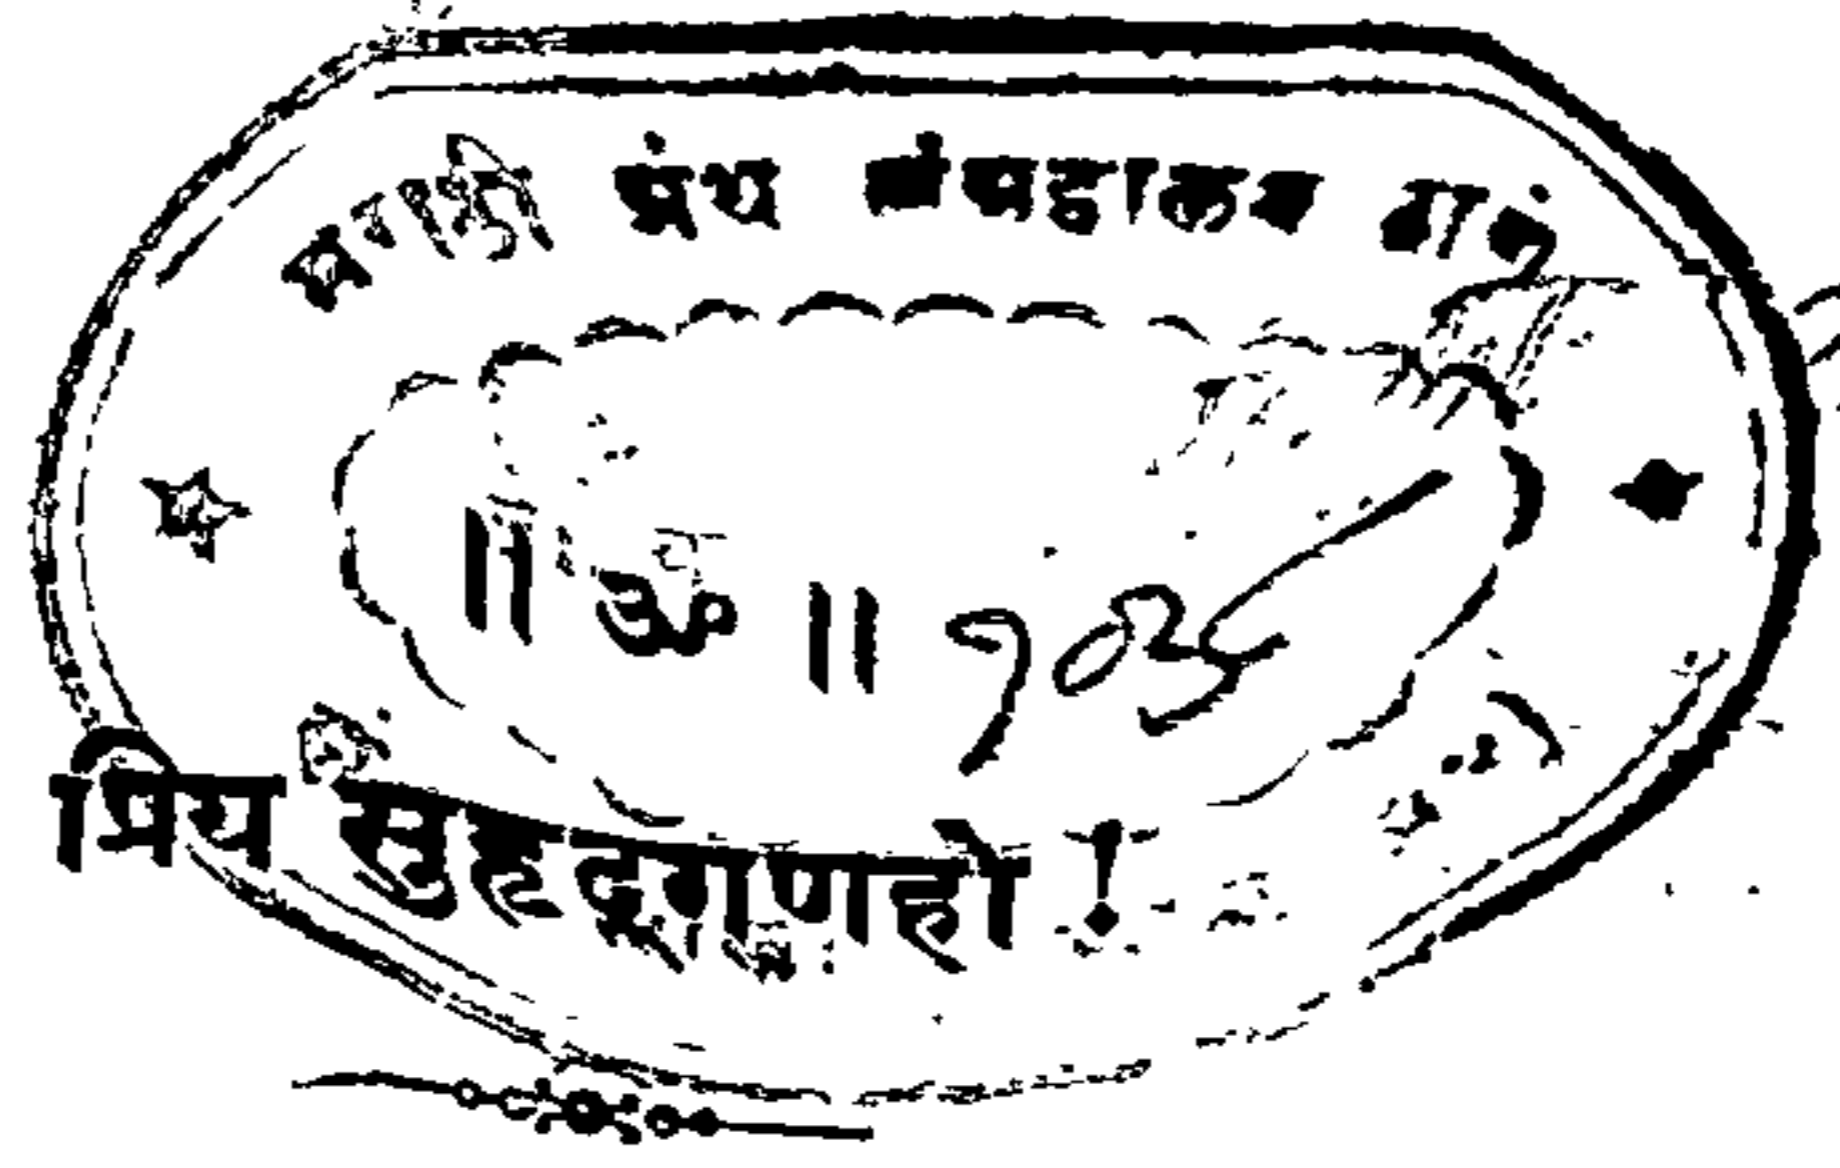 मराठी ग्रंथ संग्रहालय ठाणें
॥ ॐ ॥
प्रिय सुहृद्गणहो !